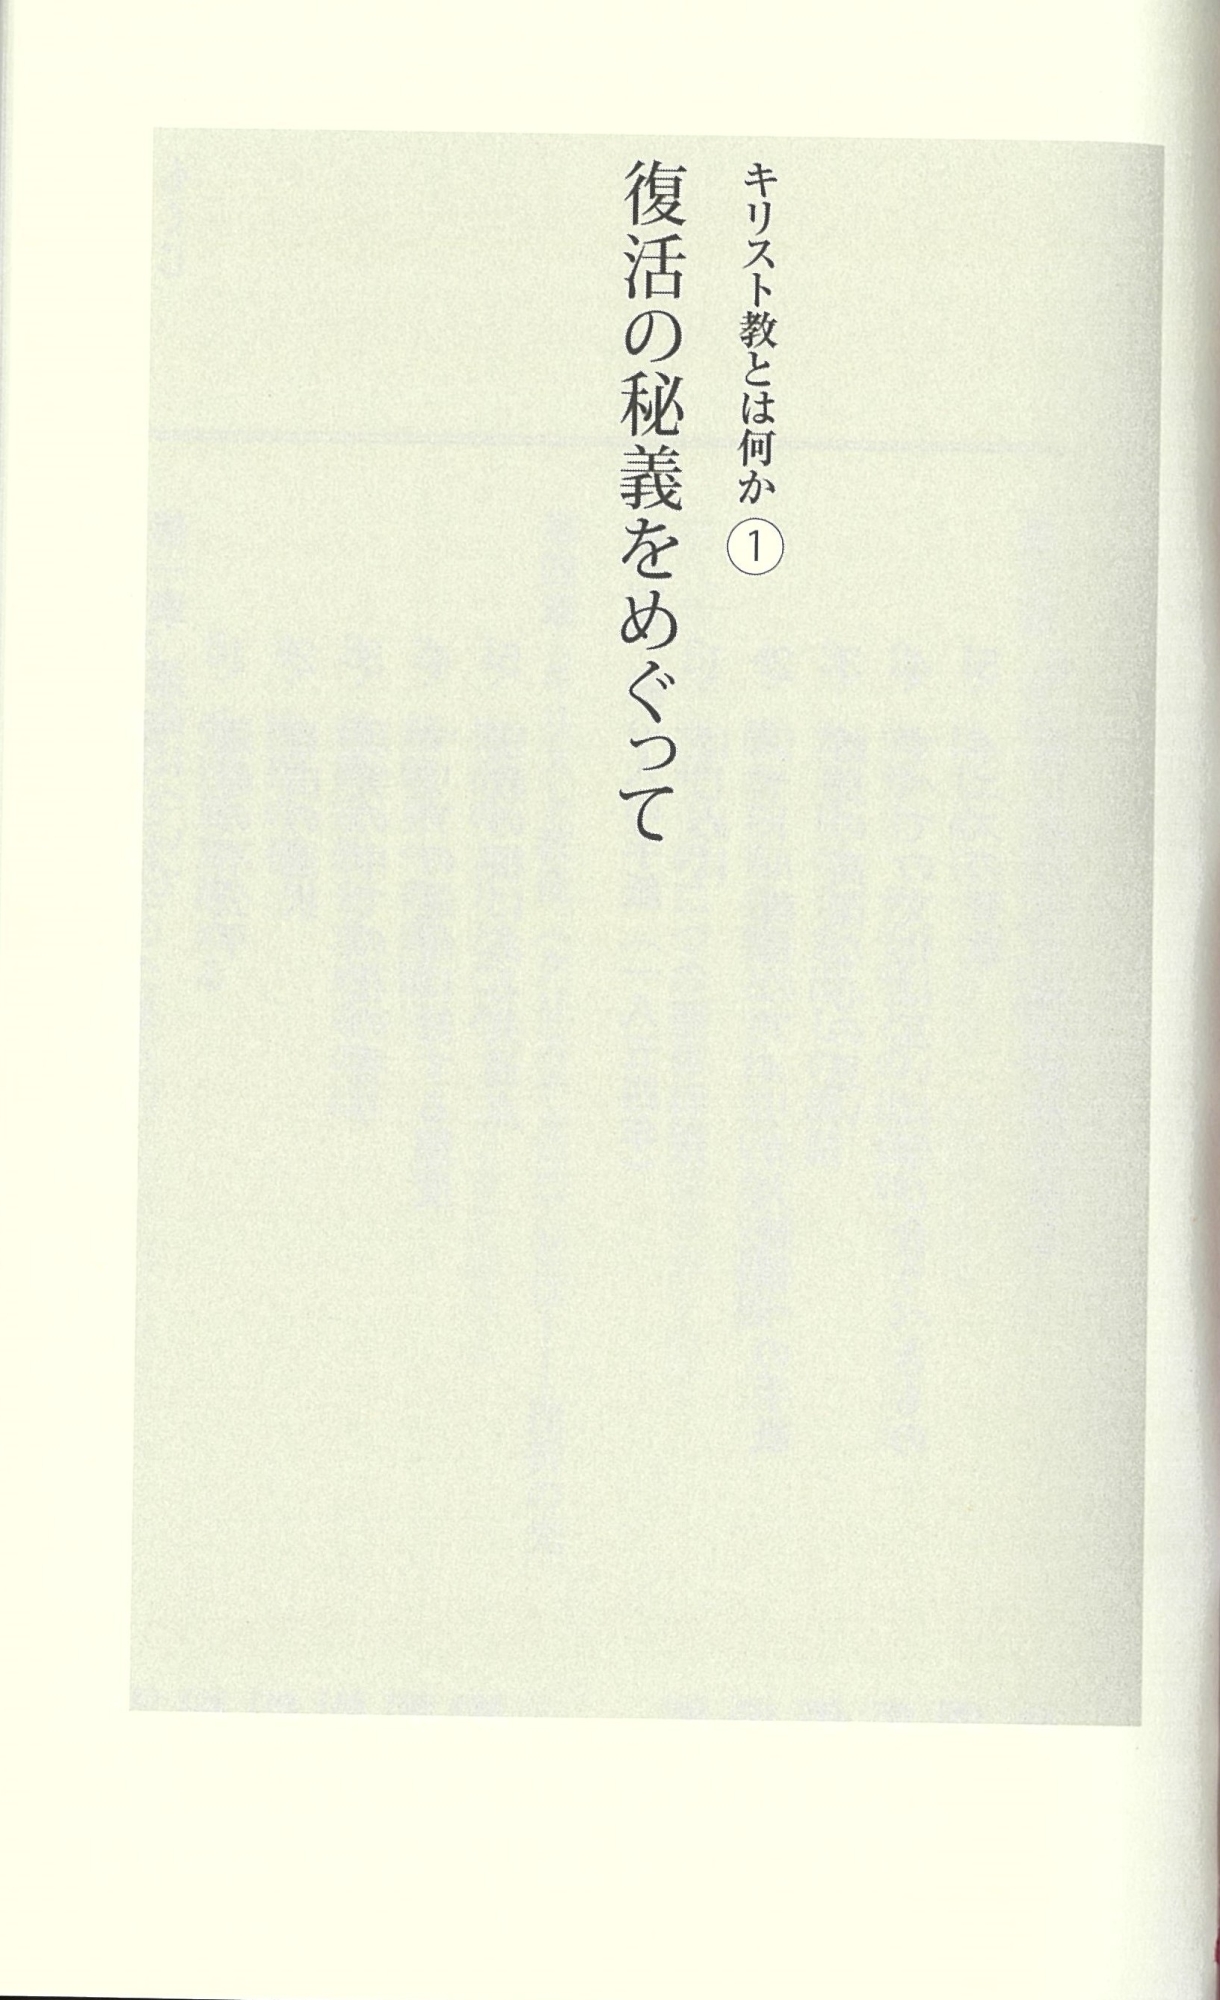 キリスト教とは何か①
復活の秘義をめぐって